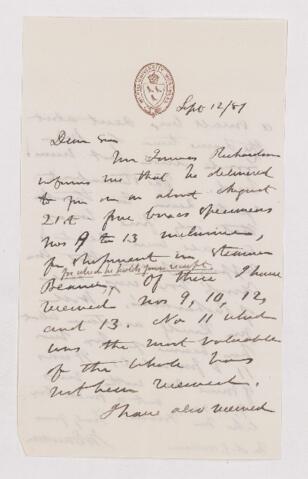 Sept 12/87
Dear Sir
Mr James Richardson
informs me that he delivered
to you on or about August
21st five boxes specimens
nos 9 to 13 inclusive,
for shipment in steamer
for which he holds your receipt.
Beaver. Of these I have
received nos 9, 10, 12,
and 13. No 11 which
was the most valuable
of the whole has
not been received.
I have also received